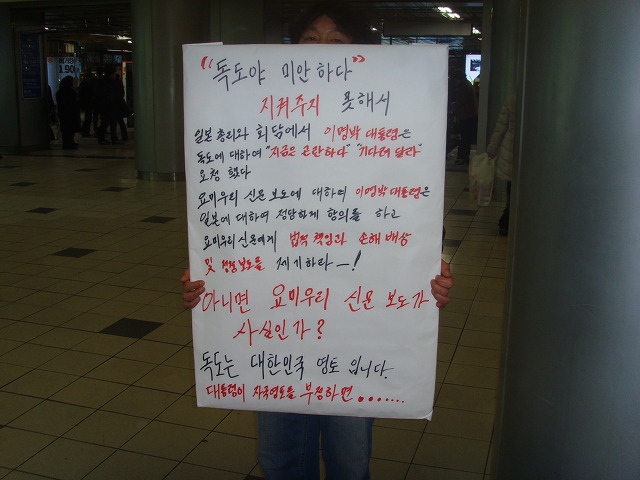 "독도야 미안하다"
지켜주지 못해서
일본 총리와 회담에서 이명박 대통령은
독도에 대하여 "지금은 곤란하다" "기다려 달라"
요청 했다
요미우리 신문 보도에 대하여 이명박 대통령은
일본에 대하여 정당하게 항의를 하고
요미우리신문에게 법적 책임과 손해 배상
및 정정보도를 제기하라-!
아니면 요미우리 신문 보도가
사실인가?
독도는 대한민국 영토 입니다.
대통령이 자국영토를 부정하면.......